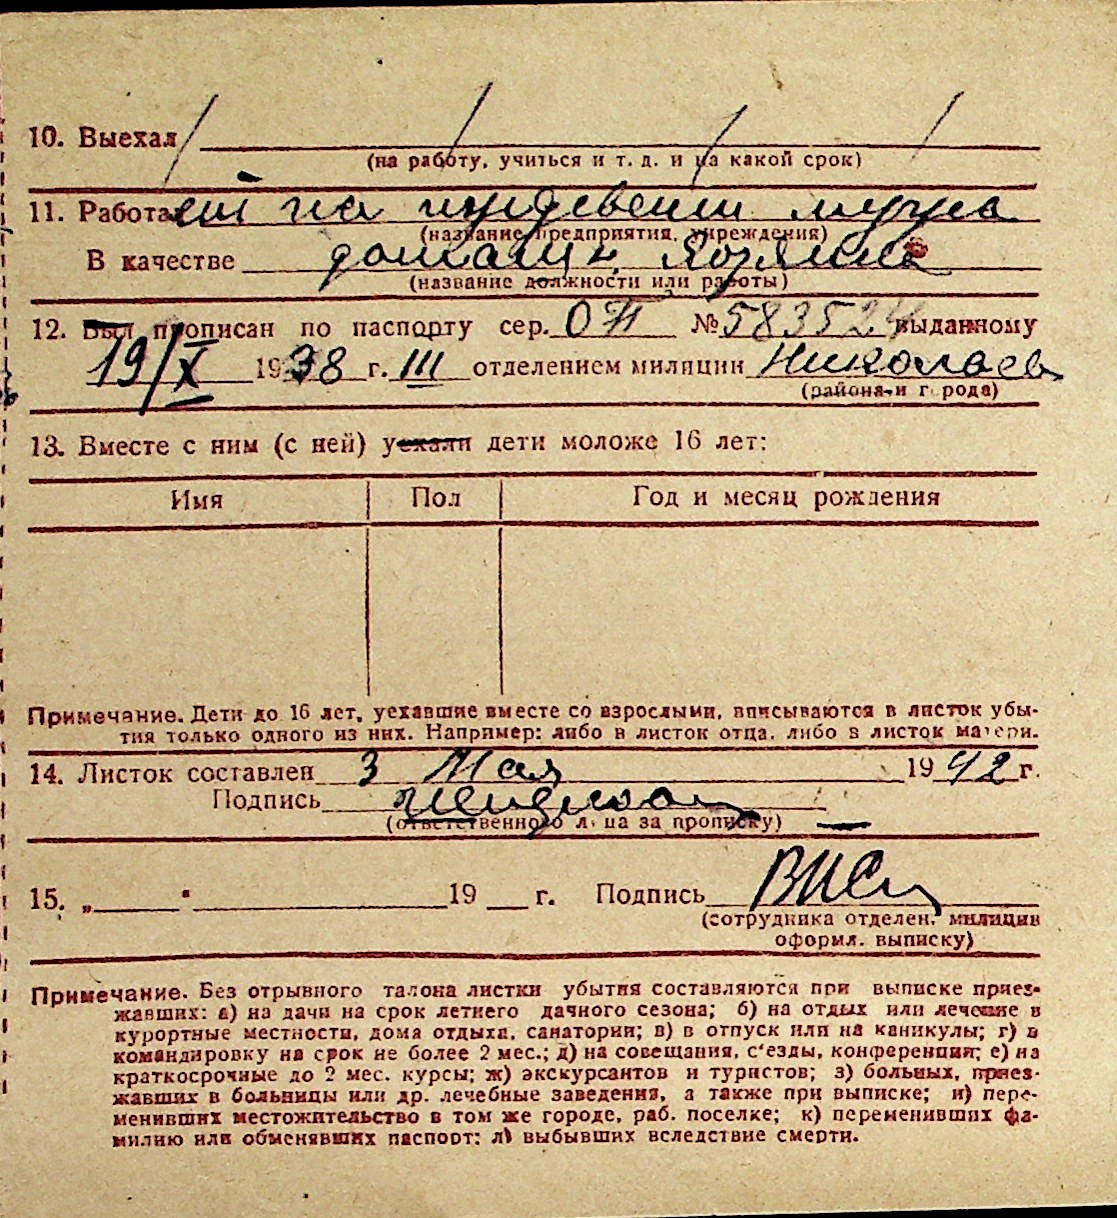 10. Выехал
(на работу, учиться и т. д. и на какой срок)
11. Работал на иждевении мужа
(название предприятия, учреждения)
В качестве домашн. хозяйка
(название должности или работы)
12. Был прописан по паспорту сер. ОП № 583524 выданному
19/X 1938 г. III отделением милиции Николаев
(района и города)
13. Вместе с ним (с ней) уехали дети моложе 16 лет:
Имя Пол Год и месяц рождения
Примечание. Дети до 16 лет, уехавшие вместе со взрослыми, вписываются в листок убы-
тия только одного из них. Например: либо в листок отца, либо в листок матери.
14. Листок составлен 3 Мая 1942 г.
Подпись
(ответственного лица за прописку)
15. „ " 19 г. Подпись
(сотрудника отделен. милиции
оформл. выписку)
Примечание. Без отрывного талона листки убытия составляются при выписке приез-
жавших: а) на дачи на срок летнего дачного сезона; б) на отдых или лечение в
курортные местности, дома отдыха, санатории; в) в отпуск или на каникулы; г) в
командировку на срок не более 2 мес.; д) на совещания, с'езды, конференции; е) на
краткосрочные до 2 мес. курсы; ж) экскурсантов и туристов; з) больных, приез-
жавших в больницы или др. лечебные заведения, а также при выписке; и) пере-
менивших местожительство в том же городе, раб. поселке; к) переменивших фа-
милию или обменявших паспорт; л) выбывших вследствие смерти.